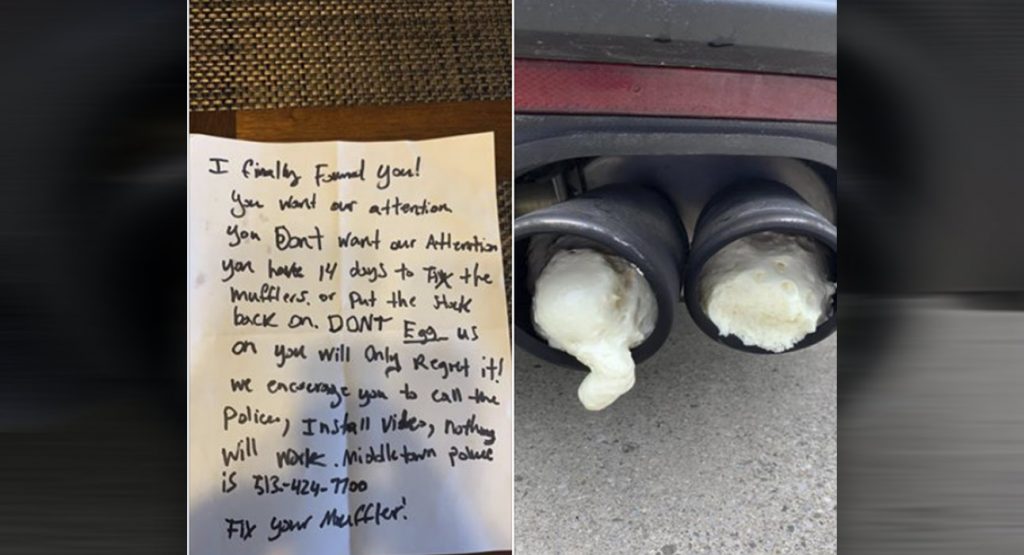 I finally Found you!
you want our attention
you Dont want our Attention
you have 14 days to Fix the
mufflers. or put the stock
back on. DONT Egg us
on you will Only Regret it!
we encourage you to call the
Police, Install Video, nothing
will work. Middletown police
is 513-424-7700
FIX your Muffler!